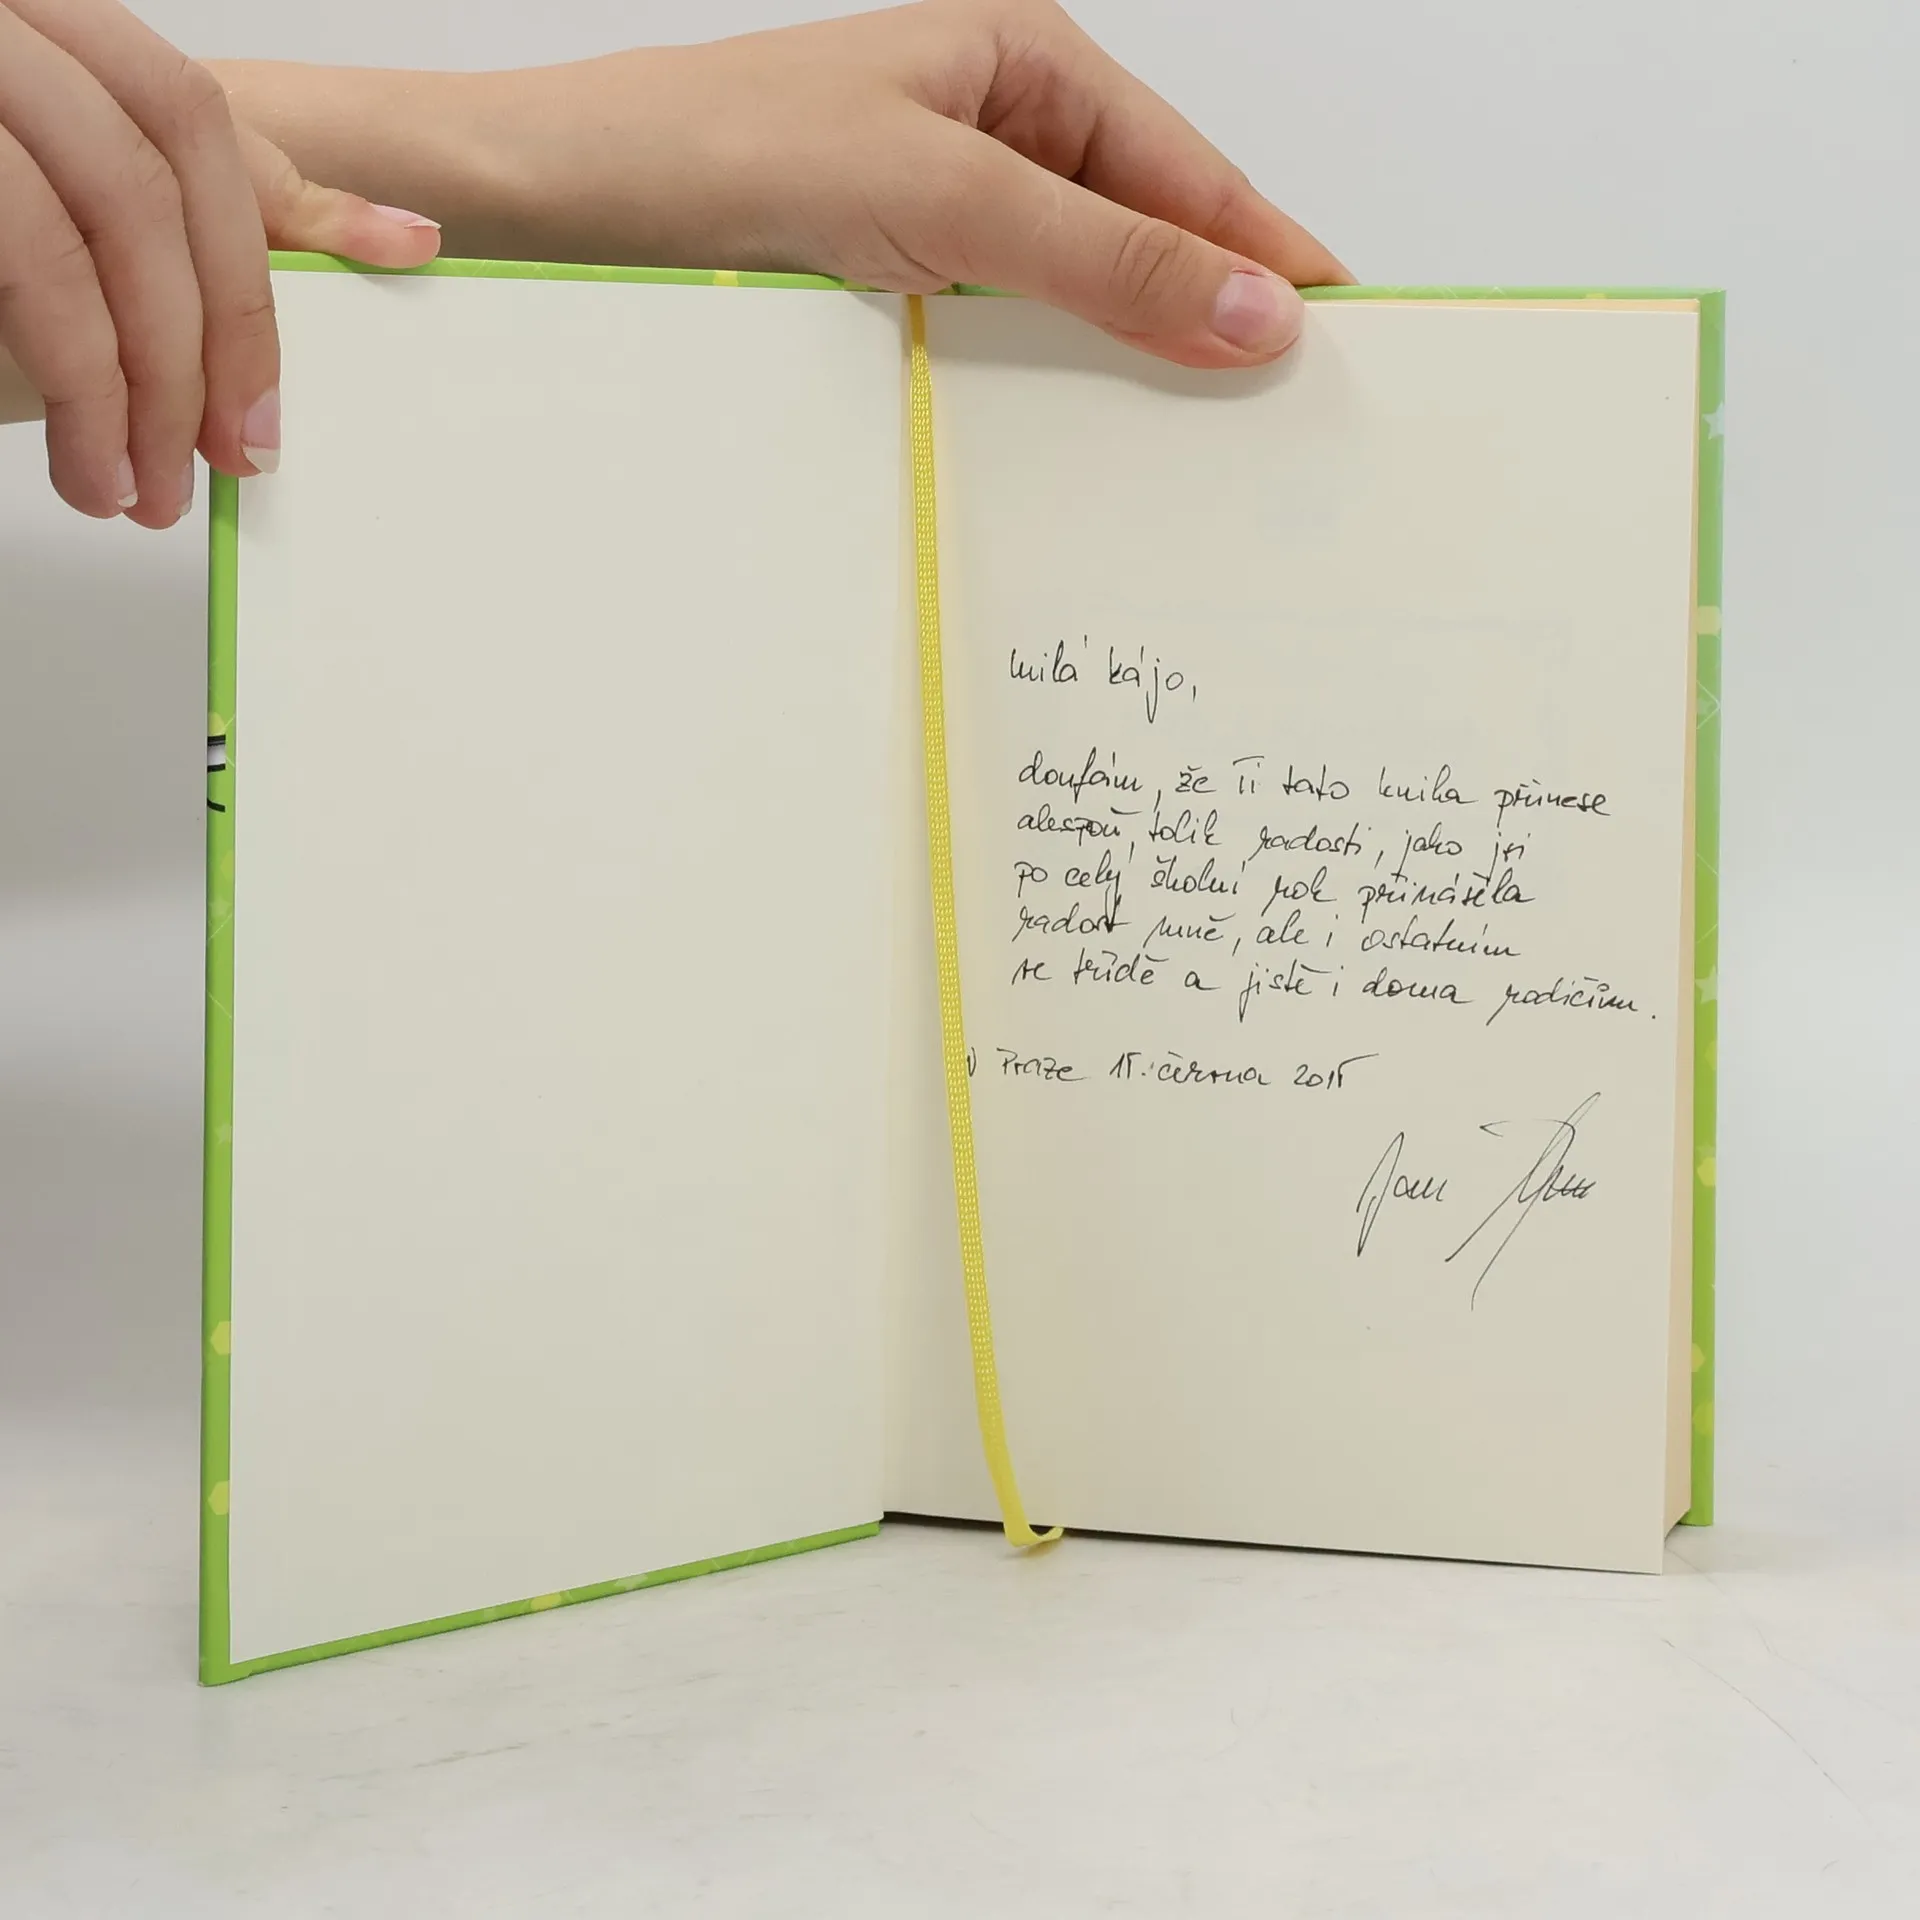 milá kájo,
doufám, že Ti tato kniha přinese
alespoň tolik radosti, jako jsi
po celý školní rok přinášela
radost mně, ale i ostatním
ve třídě a jistě i doma rodičům.
V Praze 15. června 2015